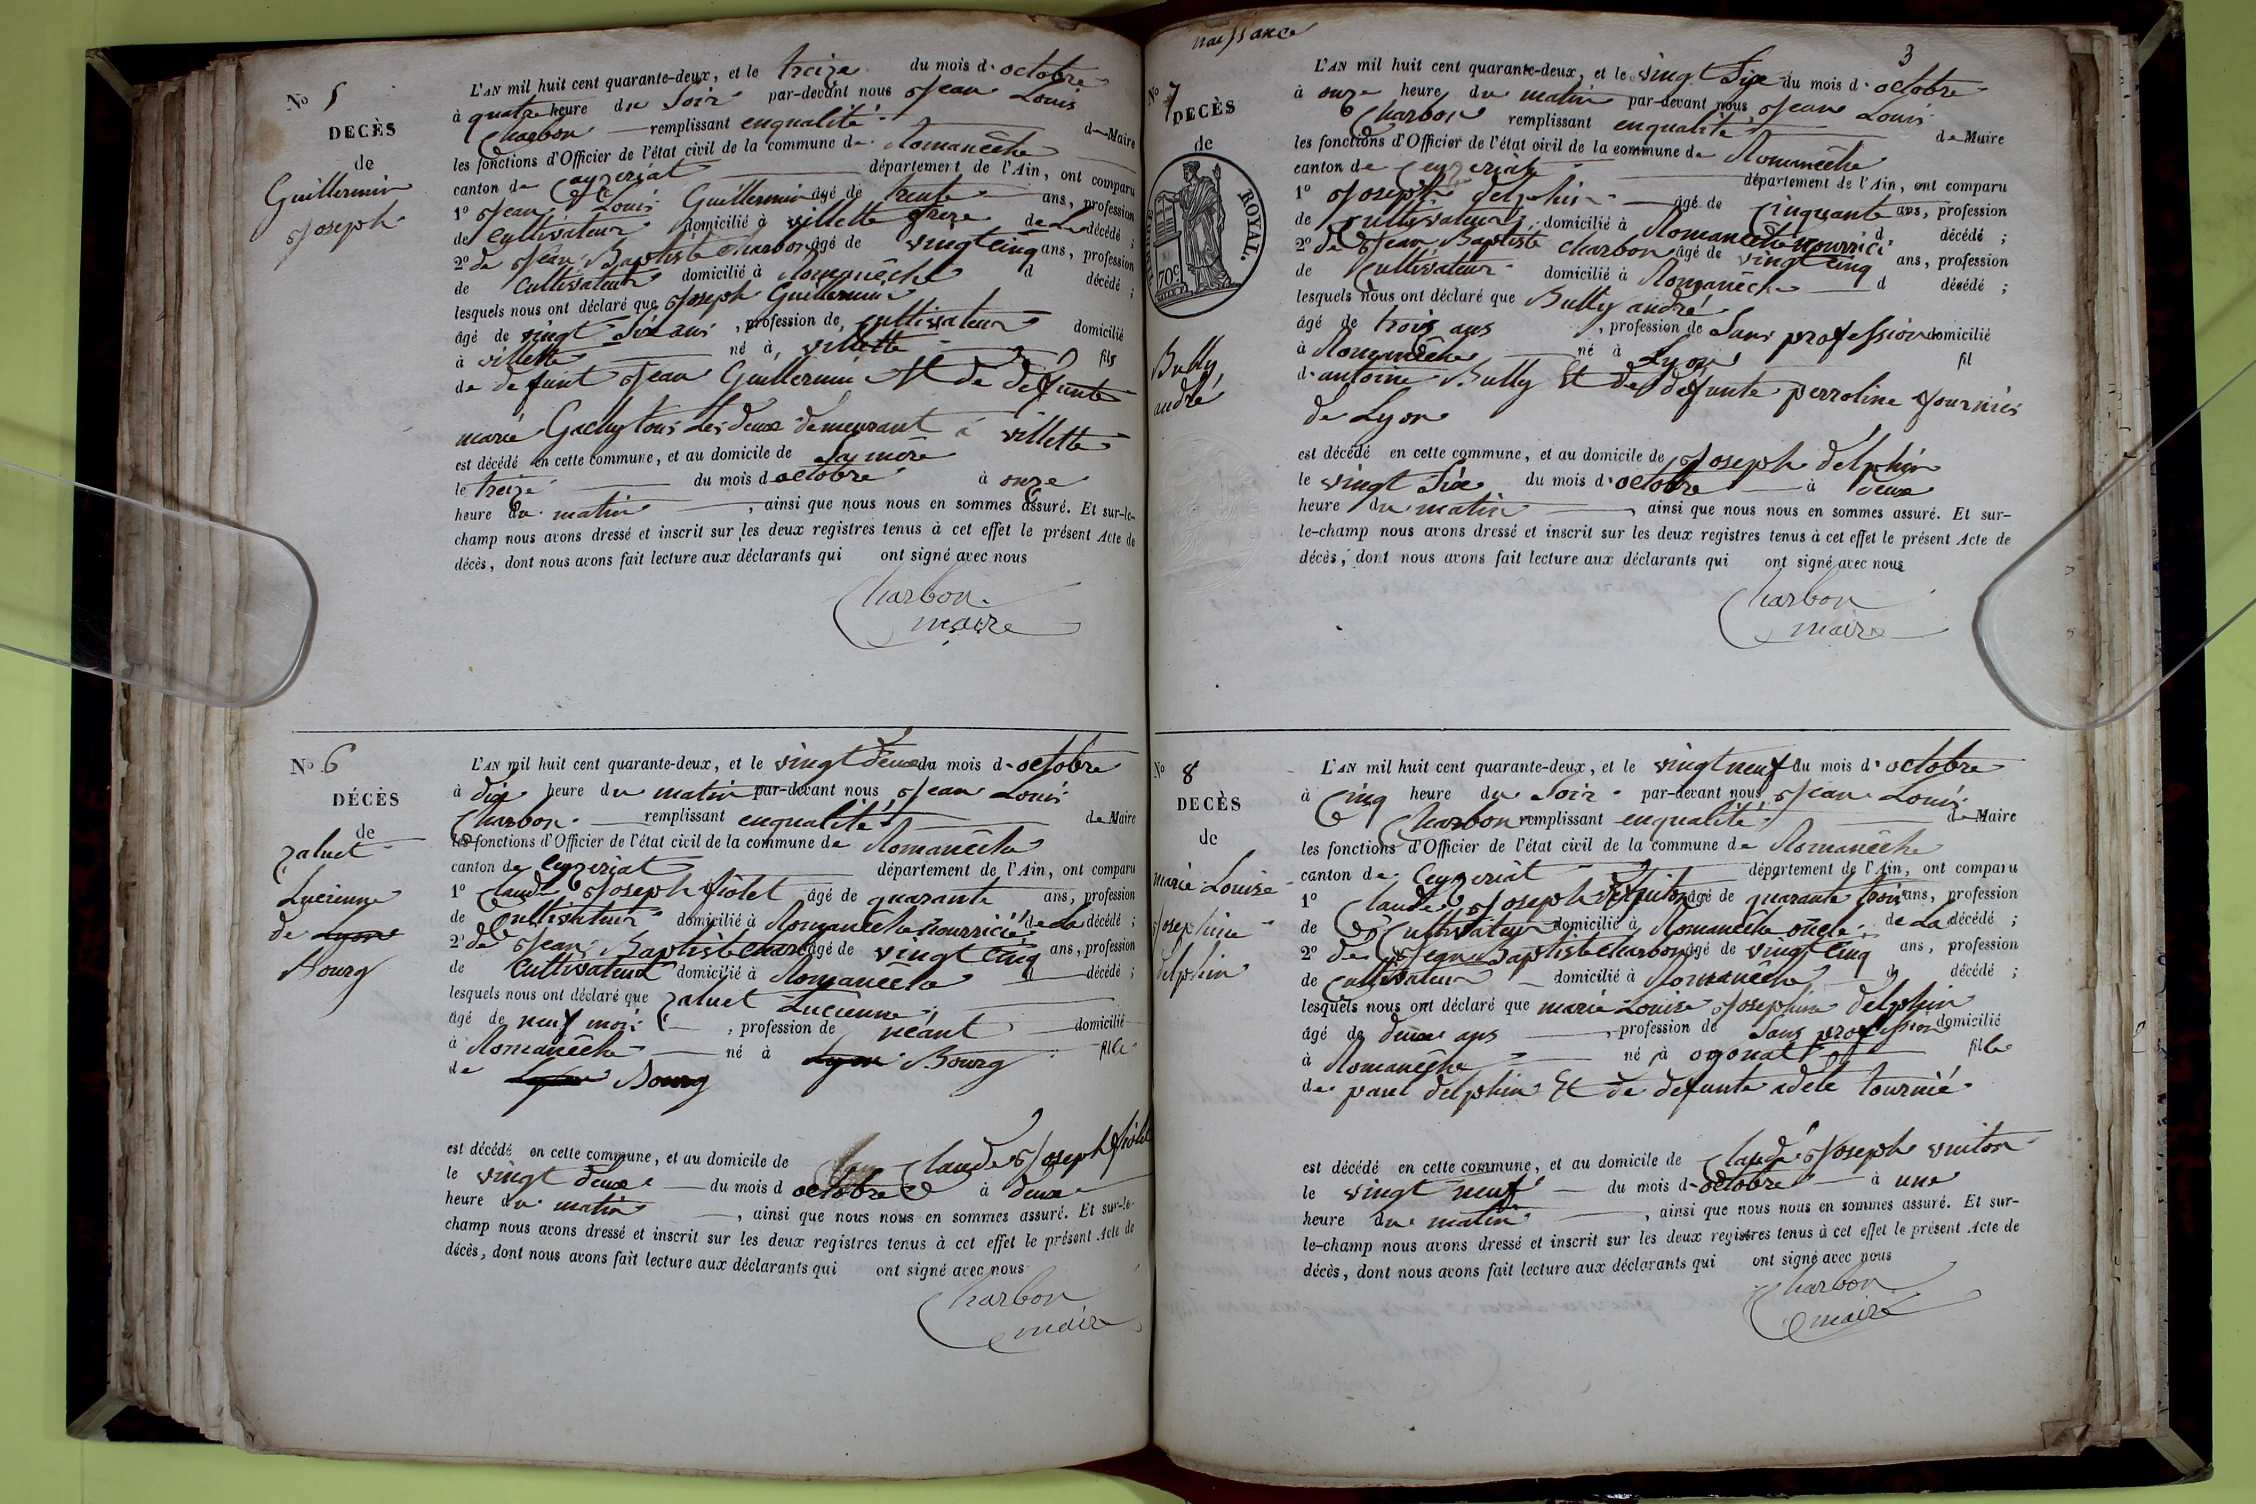 N° 5
DECÈS
de
Guillermin
Joseph
L'AN mil huit cent quarante-deux, et le treize du mois d'octobre
à quatre heure du Soir par-devant nous Jean Louis
Charbon remplissant enqualité de Maire
les fonctions d'Officier de l'état civil de la commune de Romanêche
canton de Ceyzeriat département de l'Ain, ont comparu
1° Jean Louis Guillermin âgé de trente ans, profession
de Cultivateur domicilié à villette frere de La décédé ;
2° de Jean Baptiste Charbon âgé de vingt cinq ans, profession
de Cultivateur domicilié à Romanêche d décédé ;
lesquels nous ont déclaré que Joseph Guillermin
âgé de vingt Six ans , profession de cultivateur domicilié
à villette né à villette fils
de defunt Jean Guillermin Et de defunte
marie Gachy tous Les deux demeurant à villette
est décédé en cette commune, et au domicile de
le treize du mois d octobre à onze
heure du matin , ainsi que nous nous en sommes assuré. Et sur-le-
champ nous avons dressé et inscrit sur les deux registres tenus à cet effet le présent Acte de
décès, dont nous avons fait lecture aux déclarants qui ont signé avec nous
Charbon
maire
N° 6
DÉCÈS
de
zaluet
Lucienne
de Lyon
Bourg
L'AN mil huit cent quarante-deux, et le vingt deux du mois d'octobre
à dix heure du matin par-devant nous Jean Louis
Charbon remplissant enqualité de Maire
les fonctions d'Officier de l'état civil de la commune de Romanêche
canton de Ceyzeriat département de l'Ain, ont comparu
1° Claude Joseph fiolet âgé de quarante ans, profession
de Cultivateur domicilié à Romanêche nourricié de La décédé ;
2° de Jean Baptiste Charbon âgé de vingt cinq ans, profession
de Cultivateur domicilié à Romanêche d décédé ;
lesquels nous ont déclaré que zaluet Lucienne
âgé de neuf mois , profession de néant domicilié
à Romanêche né à Lyon Bourg fille
de Lyon Bourg
est décédé en cette commune, et au domicile de Claude Joseph fiolet
le vingt deux du mois d octobre à deux
heure du matin , ainsi que nous nous en sommes assuré. Et sur-le-
champ nous avons dressé et inscrit sur les deux registres tenus à cet effet le présent Acte de
décès, dont nous avons fait lecture aux déclarants qui ont signé avec nous
Charbon
maire
naissance
3
N° 7
DECÈS
de
TIMBRE ROYAL.
70c
Bully
andré
L'AN mil huit cent quarante-deux, et le vingt Six du mois d'octobre
à onze heure du matin par-devant nous Jean Louis
Charbon remplissant enqualité de Maire
les fonctions d'Officier de l'état civil de la commune de Romanêche
canton de Ceyzeriat département de l'Ain, ont comparu
1° Joseph delphin âgé de Cinquante ans, profession
de Cultivateur domicilié à Romanêche nourrici d décédé ;
2° de Jean Baptiste Charbon âgé de vingt cinq ans, profession
de Cultivateur domicilié à Romanêche d décédé ;
lesquels nous ont déclaré que Bully andré
âgé de trois ans , profession de Sans profession domicilié
à Romanêche né à Lyon fil
d'antoine Bully Et de defunte perroline fournier
de Lyon
est décédé en cette commune, et au domicile de Joseph delphin
le vingt Six du mois d'octobre à deux
heure du matin , ainsi que nous nous en sommes assuré. Et sur-
le-champ nous avons dressé et inscrit sur les deux registres tenus à cet effet le présent Acte de
décès, dont nous avons fait lecture aux déclarants qui ont signé avec nous
Charbon
maire
N° 8
DECÈS
de
marie Louise
Josephine
delphin
L'AN mil huit cent quarante-deux, et le vingt neuf du mois d'octobre
à Cinq heure du Soir par-devant nous Jean Louis
Charbon remplissant enqualité de Maire
les fonctions d'Officier de l'état civil de la commune de Romanêche
canton de Ceyzeriat département de l'Ain, ont comparu
1° Claude Joseph âgé de quarante trois ans, profession
de Cultivateur domicilié à Romanêche oncle de La décédé ;
2° de Jean Baptiste Charbon âgé de vingt cinq ans, profession
de Cultivateur domicilié à Romanêche d décédé ;
lesquels nous ont déclaré que marie Louise Josephine delphin
âgé de deux ans , profession de Sans profession domicilié
à Romanêche né à oyonat fille
de paul delphin Et de defunte adele tournié
est décédé en cette commune, et au domicile de Claude Joseph vuiton
le vingt neuf du mois d'octobre à une
heure du matin , ainsi que nous nous en sommes assuré. Et sur-
le-champ nous avons dressé et inscrit sur les deux registres tenus à cet effet le présent Acte de
décès, dont nous avons fait lecture aux déclarants qui ont signé avec nous
Charbon
maire